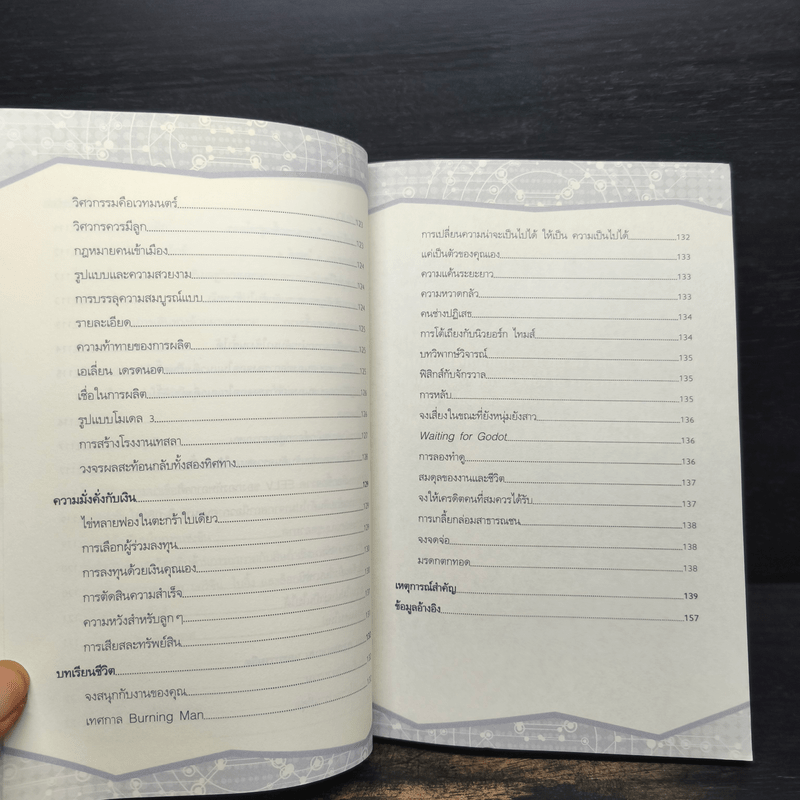 วิศวกรรมคือเวทมนตร์
วิศวกรควรมีลูก
กฎหมายคนเข้าเมือง 124
รูปแบบและความสวยงาม 124
การบรรลุความสมบูรณ์แบบ 124
รายละเอียด 125
ความท้าทายของการผลิต 125
เอเลี่ยน เดรดนอต 125
เชื่อในการผลิต 126
รูปแบบโมเดล 3 126
การสร้างโรงงานเทสลา 127
วงจรผลสะท้อนกลับทั้งสองทิศทาง 128
ความมั่งคั่งกับเงิน 129
ไข่หลายฟองในตะกร้าใบเดียว 129
การเลือกผู้ร่วมลงทุน 129
การลงทุนด้วยเงินคุณเอง 130
การตัดสินความสำเร็จ 130
ความหวังสำหรับลูกๆ
การเสียสละทรัพย์สิน
บทเรียนชีวิต
จงสนุกกับงานของคุณ
เทศกาล Burning Man
การเปลี่ยนความน่าจะเป็นไปได้ ให้เป็น ความเป็นไปได้ 132
แค่เป็นตัวของคุณเอง 133
ความแค้นระยะยาว 133
ความหวาดกลัว 133
คนช่างปฏิเสธ 134
การโต้เถียงกับนิวยอร์ก ไทมส์ 134
บทวิพากษ์วิจารณ์ 135
ฟิสิกส์กับจักรวาล 135
การหลับ 135
จงเสี่ยงในขณะที่ยังหนุ่มยังสาว 136
Waiting for Godot 136
การลองทำดู 136
สมดุลของงานและชีวิต 137
จงให้เครดิตคนที่สมควรได้รับ 137
การเกลี้ยกล่อมสาธารณชน 138
จงจดจ่อ 138
มรดกตกทอด 138
เหตุการณ์สำคัญ 139
ข้อมูลอ้างอิง 157